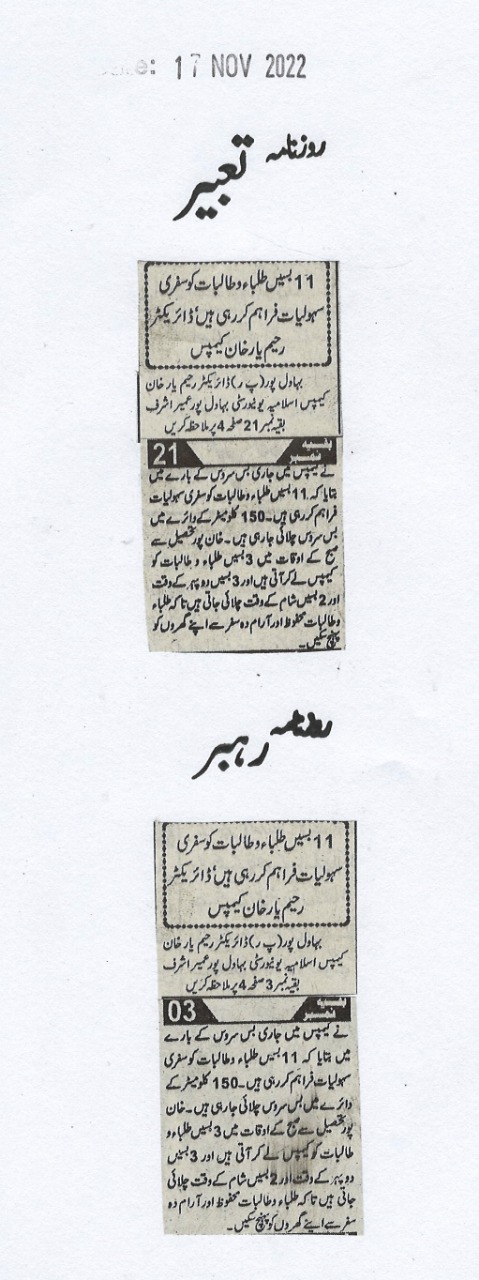 Date: 17 NOV 2022
روزنامہ تعبیر
11 بسیں طلباء و طالبات کو سفری
سہولیات فراہم کر رہی ہیں' ڈائریکٹر
رحیم یار خان کیمپس
بہاول پور (پ ر) ڈائریکٹر رحیم یار خان
کیمپس اسلامیہ یونیورسٹی بہاول پور عمیر اشرف
بقیہ نمبر 21 صفحہ 4 پر ملاحظہ کریں
بقیہ نمبر 21
نے کیمپس میں جاری بس سروس کے بارے میں
بتایا کہ 11 بسیں طلباء و طالبات کو سفری سہولیات
فراہم کر رہی ہیں۔ 150 کلومیٹر کے دائرے میں
بس سروس چلائی جا رہی ہیں۔ خان پور تحصیل سے
صبح کے اوقات میں 3 بسیں طلباء و طالبات کو
کیمپس لے کر آتی ہیں اور 3 بسیں دوپہر کے وقت
اور 2 بسیں شام کے وقت چلائی جاتی ہیں تاکہ طلباء
و طالبات محفوظ اور آرام دہ سفر سے اپنے گھروں کو
پہنچ سکیں۔
روزنامہ رہبر
11 بسیں طلباء و طالبات کو سفری
سہولیات فراہم کر رہی ہیں' ڈائریکٹر
رحیم یار خان کیمپس
بہاول پور (پ ر) ڈائریکٹر رحیم یار خان
کیمپس اسلامیہ یونیورسٹی بہاول پور عمیر اشرف
بقیہ نمبر 3 صفحہ 4 پر ملاحظہ کریں
بقیہ نمبر 03
نے کیمپس میں جاری بس سروس کے بارے
میں بتایا کہ 11 بسیں طلباء و طالبات کو سفری
سہولیات فراہم کر رہی ہیں۔ 150 کلومیٹر کے
دائرے میں بس سروس چلائی جا رہی ہیں۔ خان
پور تحصیل سے صبح کے اوقات میں 3 بسیں طلباء و
طالبات کو کیمپس لے کر آتی ہیں اور 3 بسیں
دوپہر کے وقت اور 2 بسیں شام کے وقت چلائی
جاتی ہیں تاکہ طلباء و طالبات محفوظ اور آرام دہ
سفر سے اپنے گھروں کو پہنچ سکیں۔